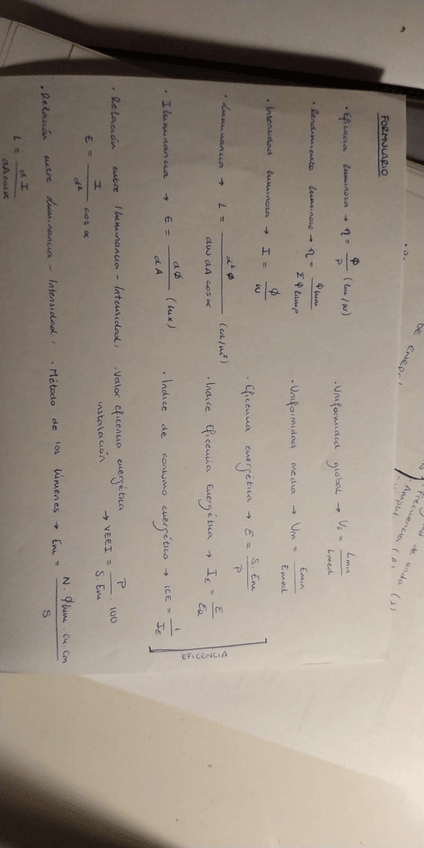 FORMULARIO
· Eficacia luminosa → η = Φ / P (lm/W)
· Rendimiento luminoso → η = Φ lum / Σ Φ lamp
· Intensidad luminosa → I = Φ / w
· Luminancia → L = d²Φ / dw dA cosα (cd/m²)
· Iluminancia → E = dΦ / dA (lux)
· Relación entre Iluminancia - Intensidad:
E = I / d² cosα
· Relación entre Luminancia - Intensidad:
L = dI / dA cosα
· Uniformidad global → U₀ = Lmin / Lmed
· Uniformidad media → Um = Emin / Emed
· Eficiencia energética → E = S · Em / P
· Indice Eficiencia Energética → I_E = E / E_R
· Indice de consumo energético → ICE = 1 / I_E
EFICENCIA
· Valor eficencia energética
instalación → VEEI = P / S · Em 100
· Método de los lúmenes → Em = N · Φ lum · Cu · Cm / S